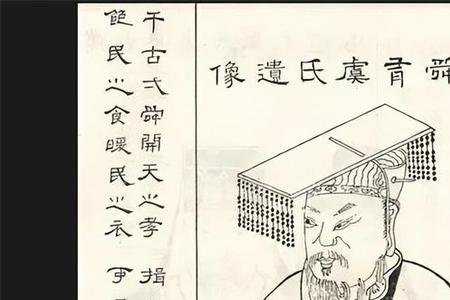 舜有虞氏遺像
千古弌舜開天之孝 揖
飽民之食暖民之衣